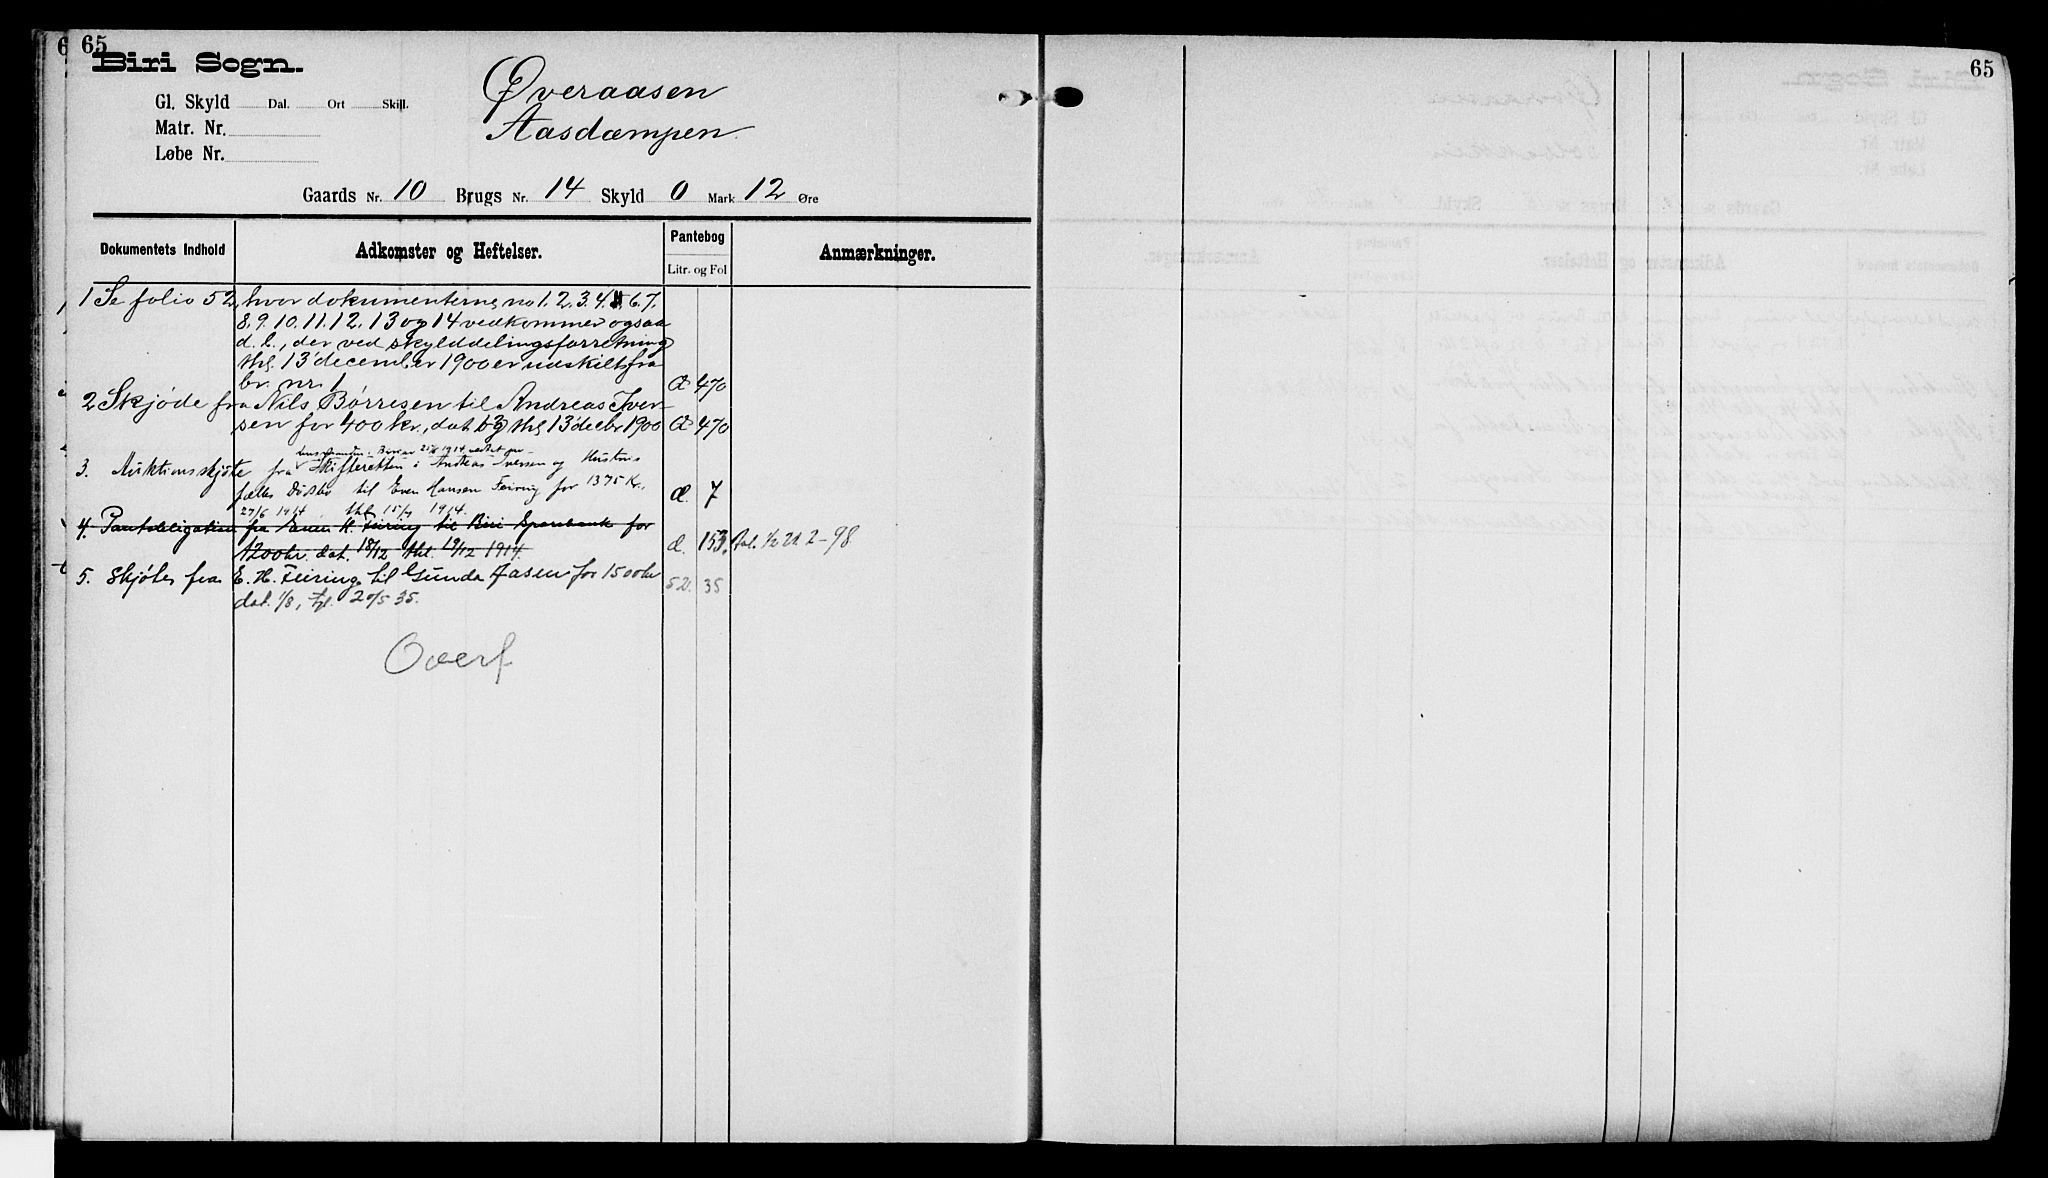 65
65
Biri Sogn.
Gl. Skyld Dal. Ort Skill.
Matr. Nr.
Løbe Nr.
Øveraasen
Aasdæmpen
Gaards Nr. 10 Brugs Nr. 14 Skyld 0 Mark 12 Øre
Dokumentets Indhold
Adkomster og Heftelser.
Pantebog
Litr. og Fol
Anmærkninger.
1 Se folio 52, hvor dokumenterne no 1. 2. 3. 4. 6. 7.
8. 9. 10. 11. 12. 13 og 14 vedkommer ogsaa
d. b., der ved skylddelingsforretning
thl. 13 december 1900 er udskilt fra
br. nr. 1 470
2 Skjøde fra Nils Børresen til Andreas Iver-
sen for 400 kr., dat. og thl. 13 decbr 1900 470
3. Auktionsskjøte fra Skifteretten i Andreas Iversen og Hustrus
fælles Dødsbo til Even Hansen Feiring for 1375 Kr.
27/6 1914 thl. 15/7 1914. æ. 7
4. Pantobligation fra Even H. Feiring til Biri Sparebank for
1200 kr. dat. 18/12 thl. 19/12 1914. æ. 153. 2-98
5. Skjøte fra E. H. Feiring til Gunda Aasen for 1500 kr
dat. 1/8, tgl. 20/5 35. 35
Overf